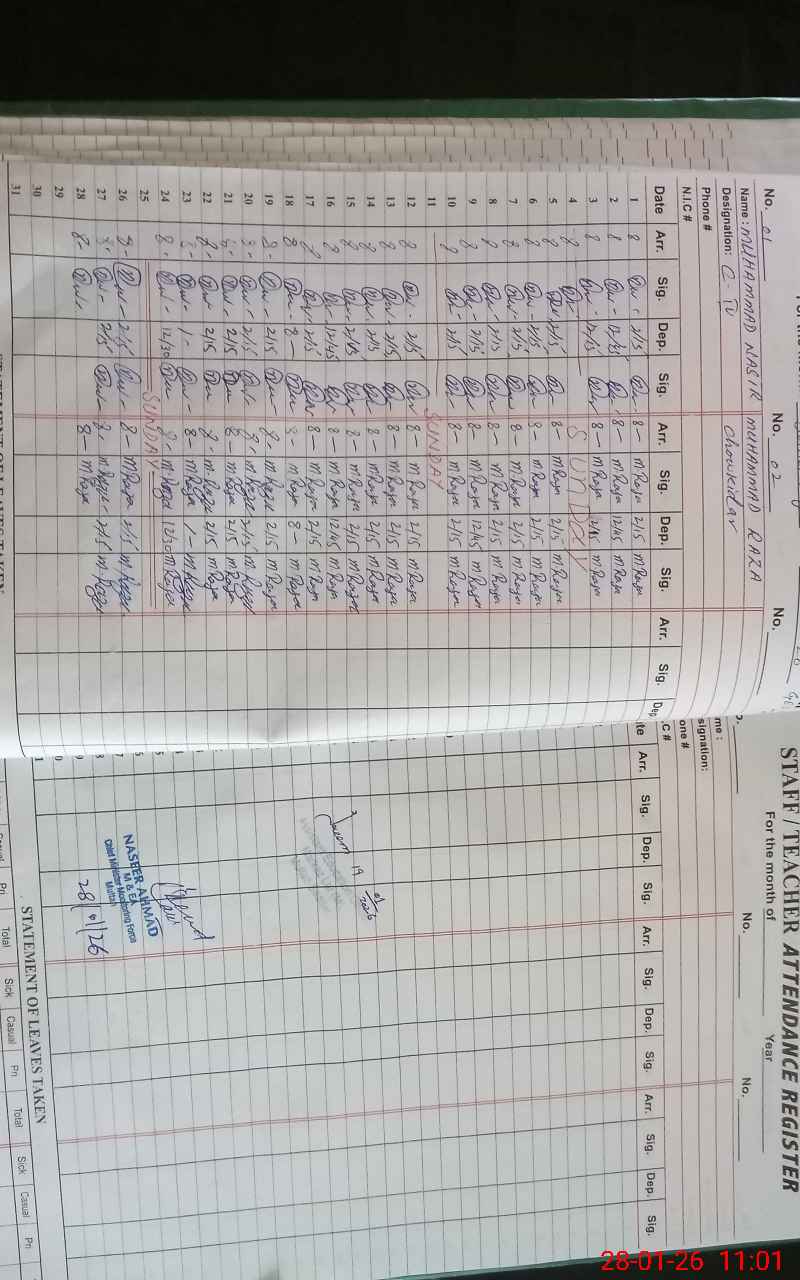 STAFF / TEACHER ATTENDANCE REGISTER
For the month of Year
No. 01 No. 02 No.
Name: MUHAMMAD NASIR MUHAMMAD RAZA
Designation: C-IV Chowkidar
Phone #
N.I.C #
Date Arr. Sig. Dep. Sig. Arr. Sig. Dep. Sig. Arr. Sig. Dep.
1 8 2/15 8- M Raza 2/15 M Raza
2 8 12/45 8- M Raza 12/45 M Raza
3 8 2/15 8- M Raza 2/15 M Raza
4 SUNDAY
5 8 2/15 8- M Raza 2/15 M Raza
6 8 2/15 8- M Raza 2/15 M Raza
7 8 2/15 8- M Raza 2/15 M Raza
8 8 2/15 8- M Raza 2/15 M Raza
9 8 2/15 8- M Raza 12/45 M Raza
10 8 2/15 8- M Raza 2/15 M Raza
11 SUNDAY
12 8 2/15 8- M Raza 2/15 M Raza
13 8 2/15 8- M Raza 2/15 M Raza
14 8 2/15 8- M Raza 2/15 M Raza
15 8 2/45 8- M Raza 2/15 M Raza
16 8 12/45 8- M Raza 12/45 M Raza
17 8 2/15 8- M Raza 2/15 M Raza
18 8 8- 8- M Raza 8- M Raza
19 8- 2/15 8- M Raza 2/15 M Raza
20 8- 2/15 8- M Raza 2/15 M Raza
21 8- 2/15 8- M Raza 2/15 M Raza
22 8- 2/15 8- M Raza 2/15 M Raza
23 8- 1- 8- M Raza 1- M Raza
24 8- 12/30 8- M Raza 12/30 M Raza
25 SUNDAY
26 8- 2/15 8- M Raza 2/15 M Raza
27 8- 2/15 8- M Raza 2/15 M Raza
28 8- 8- M Raza
29
30
31
No. No.
C #
Arr. Sig. Dep. Sig. Arr. Sig. Dep. Sig. Arr. Sig. Dep. Sig.
19 01/2026
NASEER AHMAD
M & EA
Chief Minister Monitoring Force
Multan
28/01/26
STATEMENT OF LEAVES TAKEN
Total Sick Casual Pri Total Sick Casual Pri
28-01-26 11:01